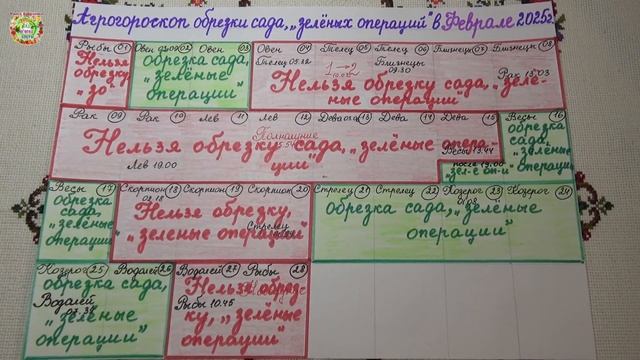 Агрогороскоп обрезки сада, „зелёных операций" в Феврале 2025г.
Рыбы 01 Овен 02 Овен 03 Овен 04 Телец 05 Телец 06 Близнецы 07 Близнецы 08
Телец 05.12 Близнецы 09.30 Рак 15.03
Нельзя обрезку, „зо"
обрезка сада, „зелёные операции"
Нельзя обрезку сада, „зелёные операции"
Рак 09 Рак 10 Лев 11 Лев 12 Дева 13 Дева 14 Дева 15 Весы 16
Полнолуние
Нельзя обрезку сада, „зелёные операции"
Лев 19.00
Весы 13.44
после 19.00
обрезка сада, „зелёные операции"
Весы 17 Скорпион 18 Скорпион 19 Скорпион 20 Стрелец 21 Стрелец 22 Козерог 23 Козерог 24
обрезка сада, „зелёные операции"
Нельзя обрезку, „зеленые операции"
Стрелец
обрезка сада, „зелёные операции"
Козерог 25 Водолей 26 Водолей 27 Рыбы 28
обрезка сада, „зелёные операции"
Водолей
Нельзя обрезку, „зелёные операции"
Рыбы 10.45